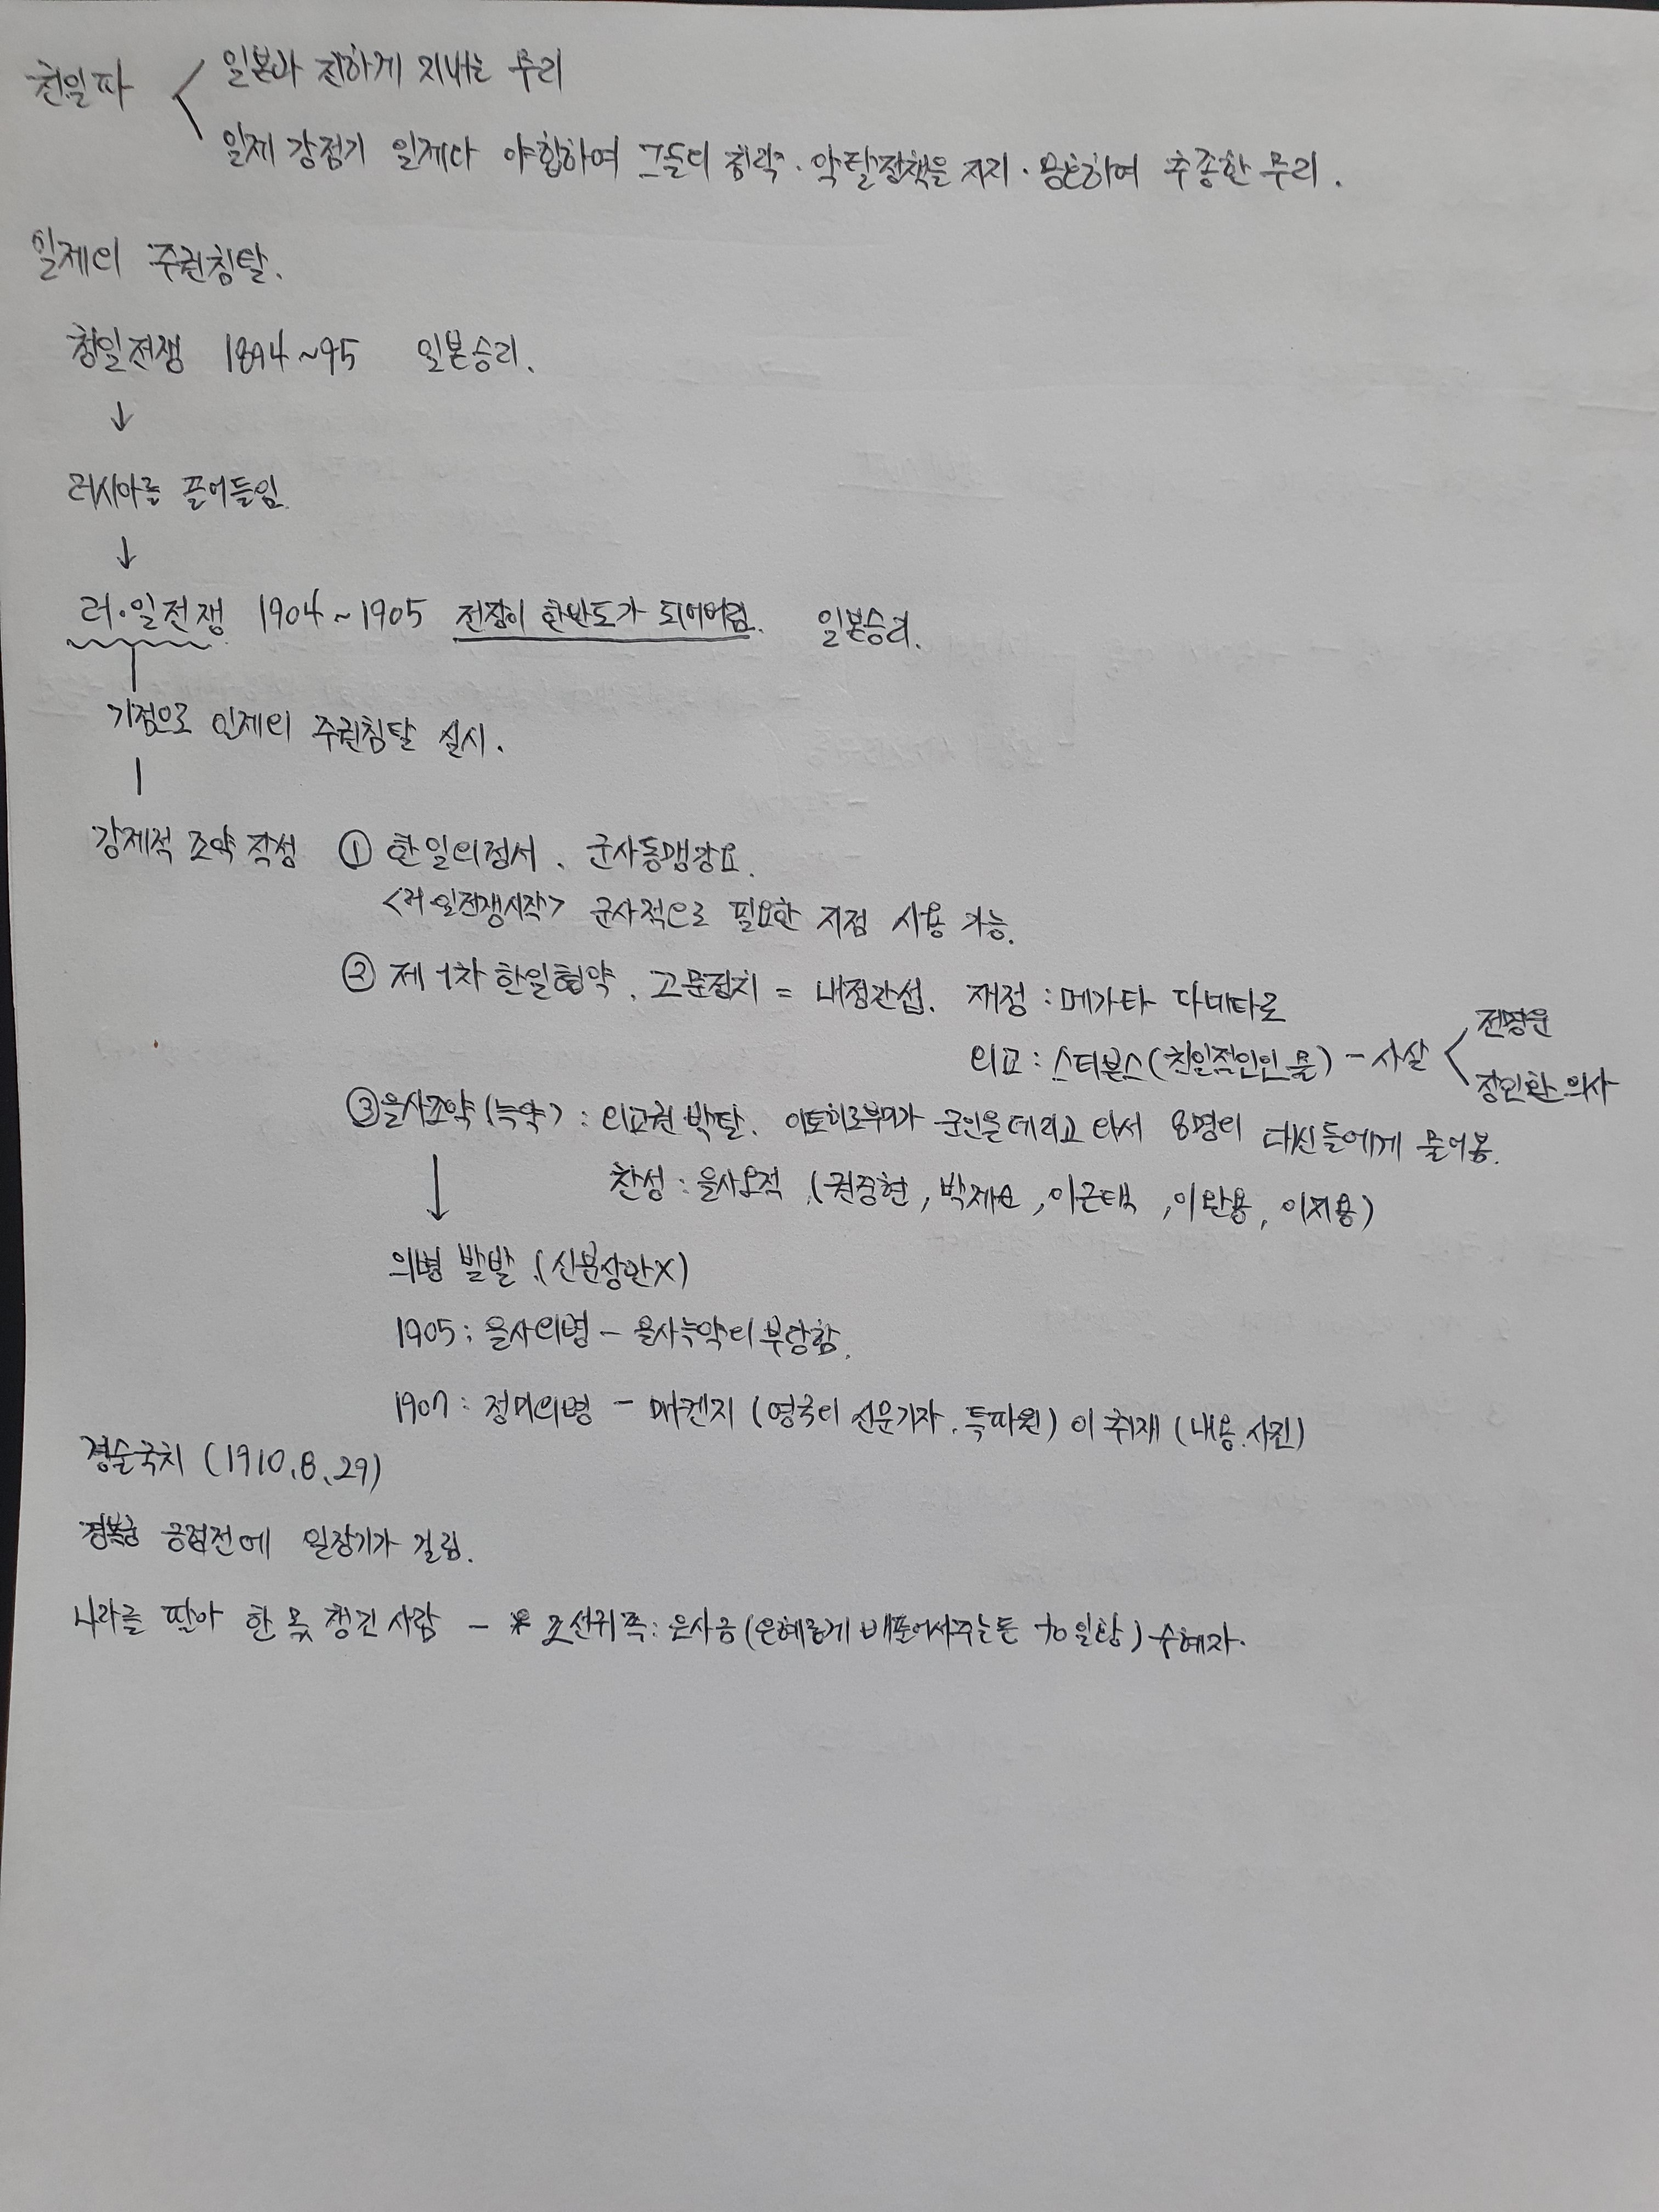 친일파
일본과 친하게 지내는 무리
일제 강점기 일제와 야합하여 그들의 침략·약탈정책을 지지·옹호하여 추종한 무리.
일제의 주권침탈.
청일전쟁 1894~95 일본승리.
↓
러시아를 끌어들임.
↓
러·일전쟁 1904~1905 전장이 한반도가 되어버림. 일본승리.
기점으로 일제의 주권침탈 실시.
강제적 조약 작성 ① 한일의정서. 군사동맹강요.
<러일전쟁시작> 군사적으로 필요한 지점 사용 가능.
② 제1차 한일협약. 고문정치 = 내정간섭. 재정 : 메가타 다네타로
외교 : 스티븐스(친일적인인물) - 사살 전명운
장인환 의사
③ 을사조약(늑약) : 외교권 박탈. 이토히로부미가 군인을데리고 와서 8명의 대신들에게 물어봄.
↓ 찬성 : 을사오적 (권중현, 박제순, 이근택, 이완용, 이지용)
의병 발발. (신분상관X)
1905 : 을사의병 - 을사늑약의 부당함.
1907 : 정미의병 - 매켄지 (영국의 신문기자. 특파원)이 취재 (내용.사진)
경술국치 (1910.8.29)
경복궁 근정전에 일장기가 걸림.
나라를 팔아 한 몫 챙긴 사람 - * 조선귀족 : 은사금(은혜롭게 베풀어서주는돈) 수혜자.